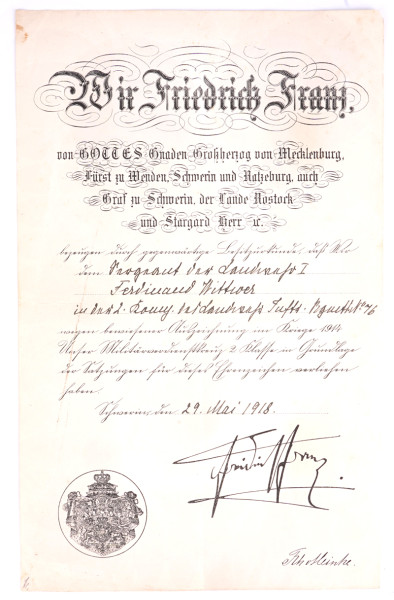 Wir Friedrich Franz,
von GOTTES Gnaden Großherzog von Mecklenburg,
Fürst zu Wenden, Schwerin und Ratzeburg, auch
Graf zu Schwerin, der Lande Rostock
und Stargard Herr etc.
bezeugen durch gegenwärtige Besitzurkunde, daß Wir
dem Sergeant der Landwehr I
Ferdinand Wittwer
in der 2. Komp. des Landwehr Inftr. Regmts No 76
wegen bewiesener Auszeichnung im Kriege 1914
Unser Militärverdienstkreuz 2 Klasse in Grundlage
der Satzungen für dieses Ehrenzeichen verliehen
haben.
Schwerin, den 29. Mai 1918.
Friedrich Franz.